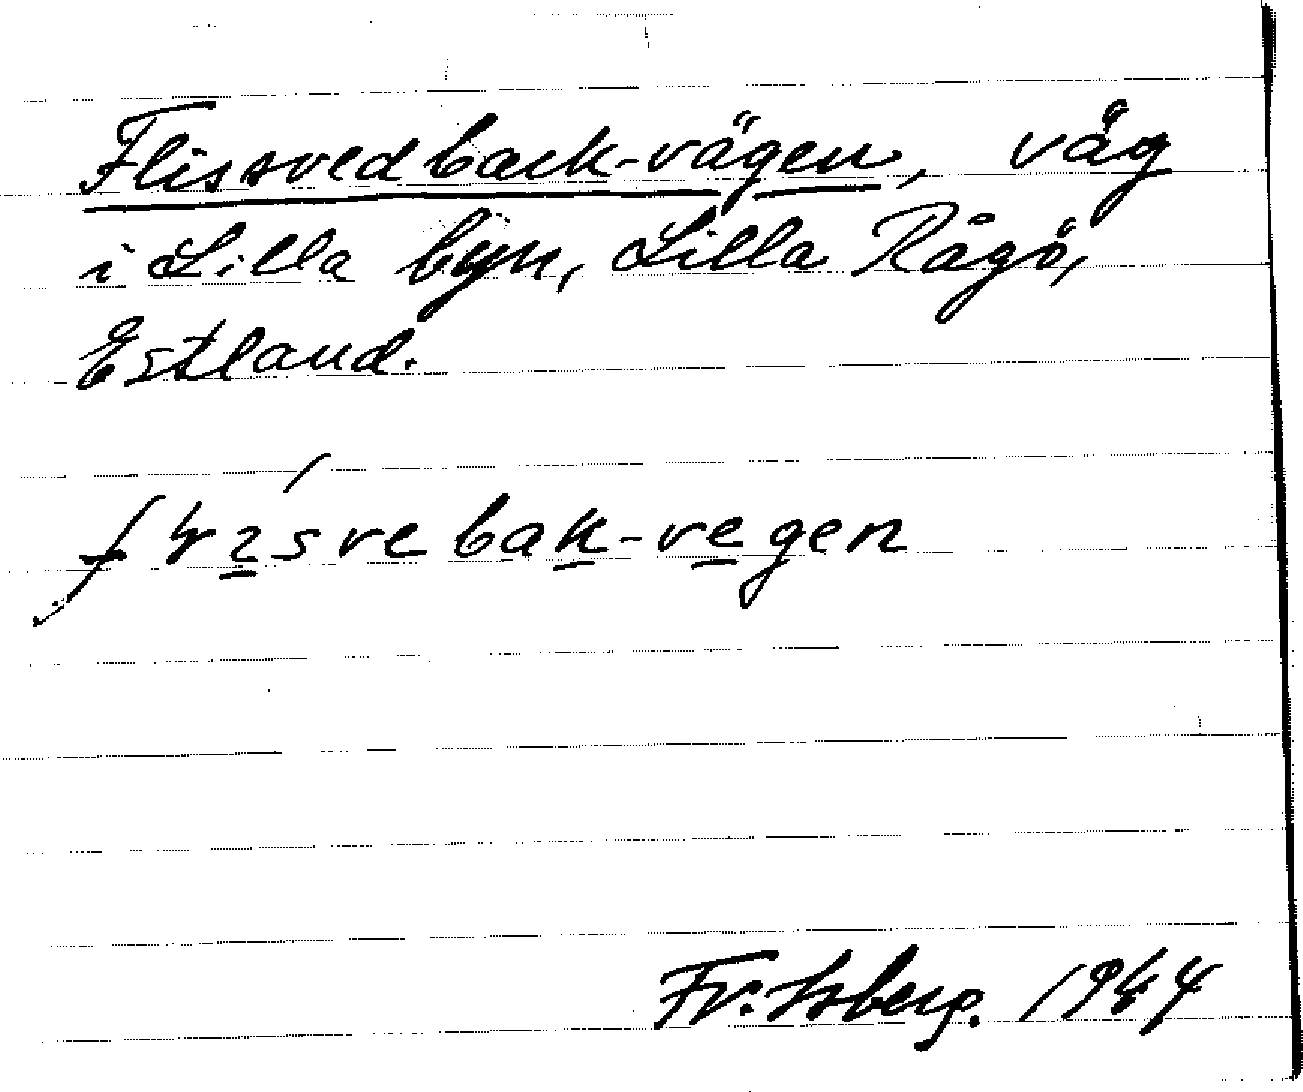 Flissvedback-vägen, väg
i Lilla byn, Lilla Rågö,
Estland.
fɽɪ́svebak-vegen
Fr. Isberg. 1944